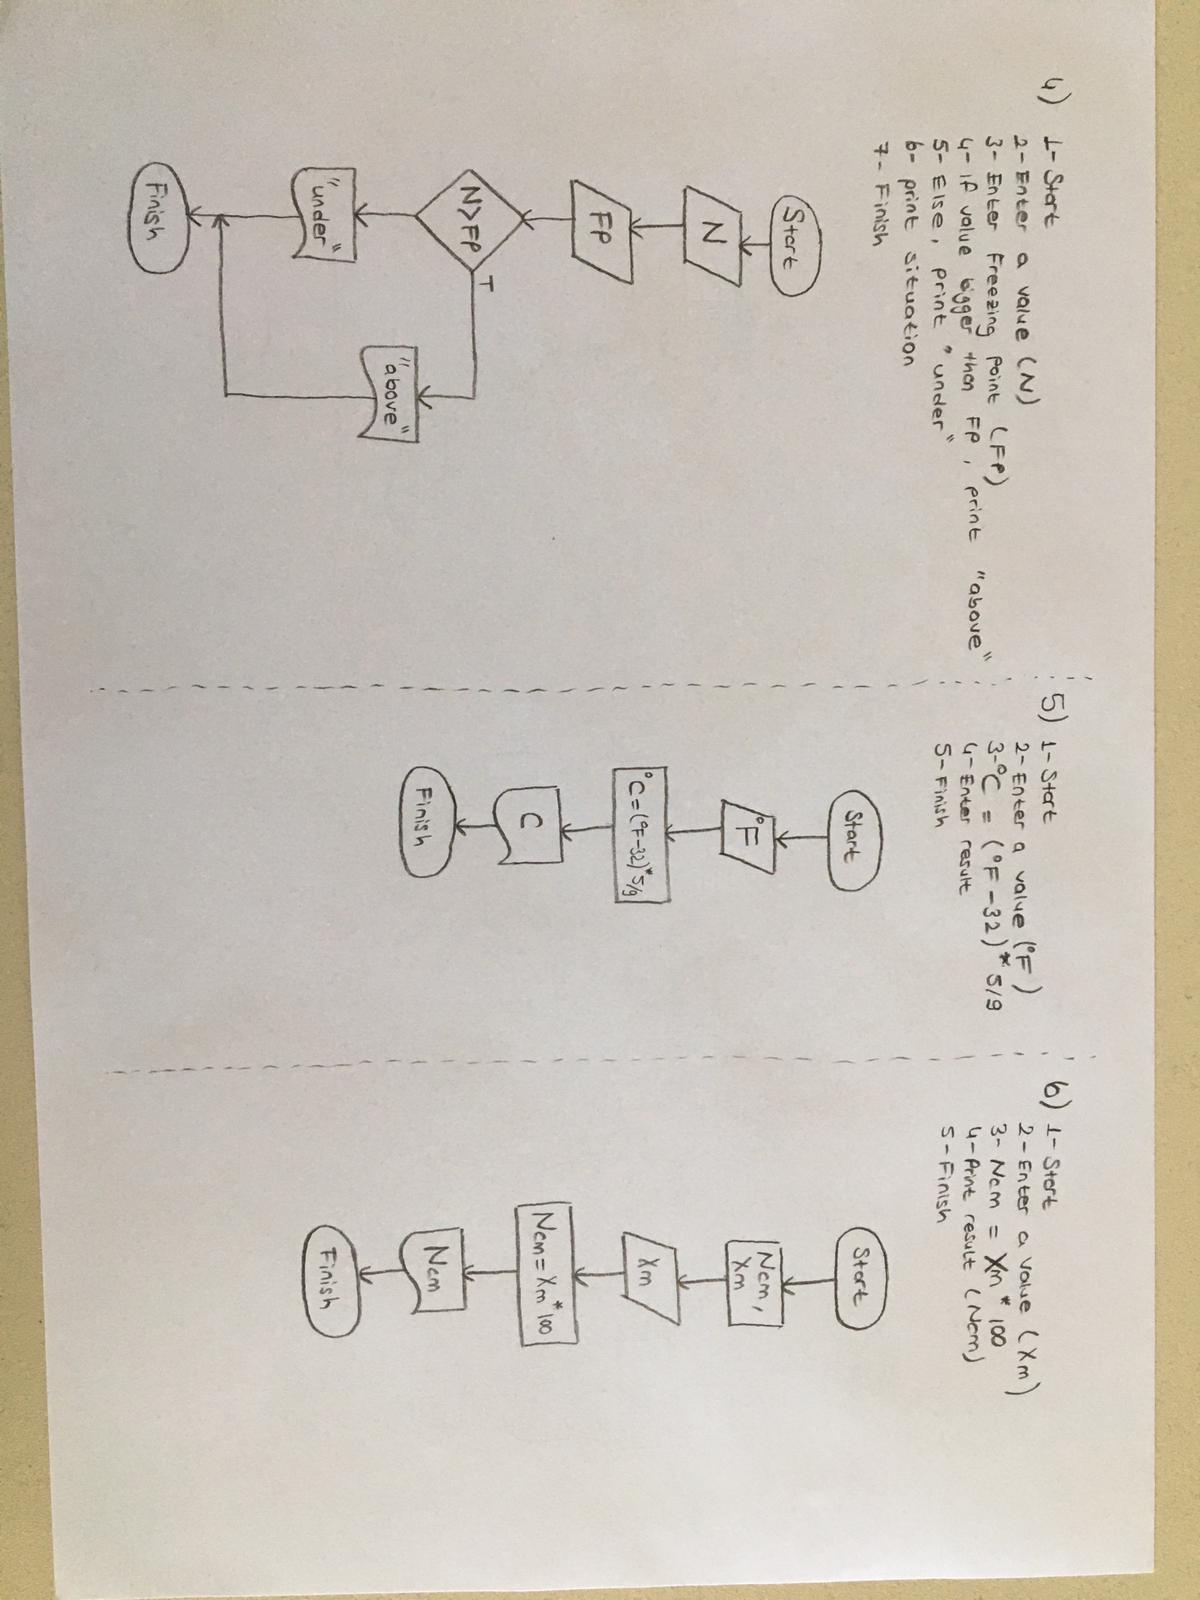 4) 1- Start
2- Enter a value (N)
3- Enter Freezing Point (FP)
4- if value bigger then FP, print "above"
5- Else, print "under"
6- print situation
7- Finish
Start
N
FP
N>FP
T
"above"
"under"
Finish
5) 1- Start
2- Enter a value (°F)
3- °C = (°F-32)* 5/9
4- Enter result
5- Finish
Start
°F
°C=(°F-32)*5/9
C
Finish
6) 1- Start
2- Enter a value (Xm)
3- Ncm = Xm * 100
4- Print result (Ncm)
5- Finish
Start
Ncm,
Xm
Xm
Ncm=Xm*100
Ncm
Finish